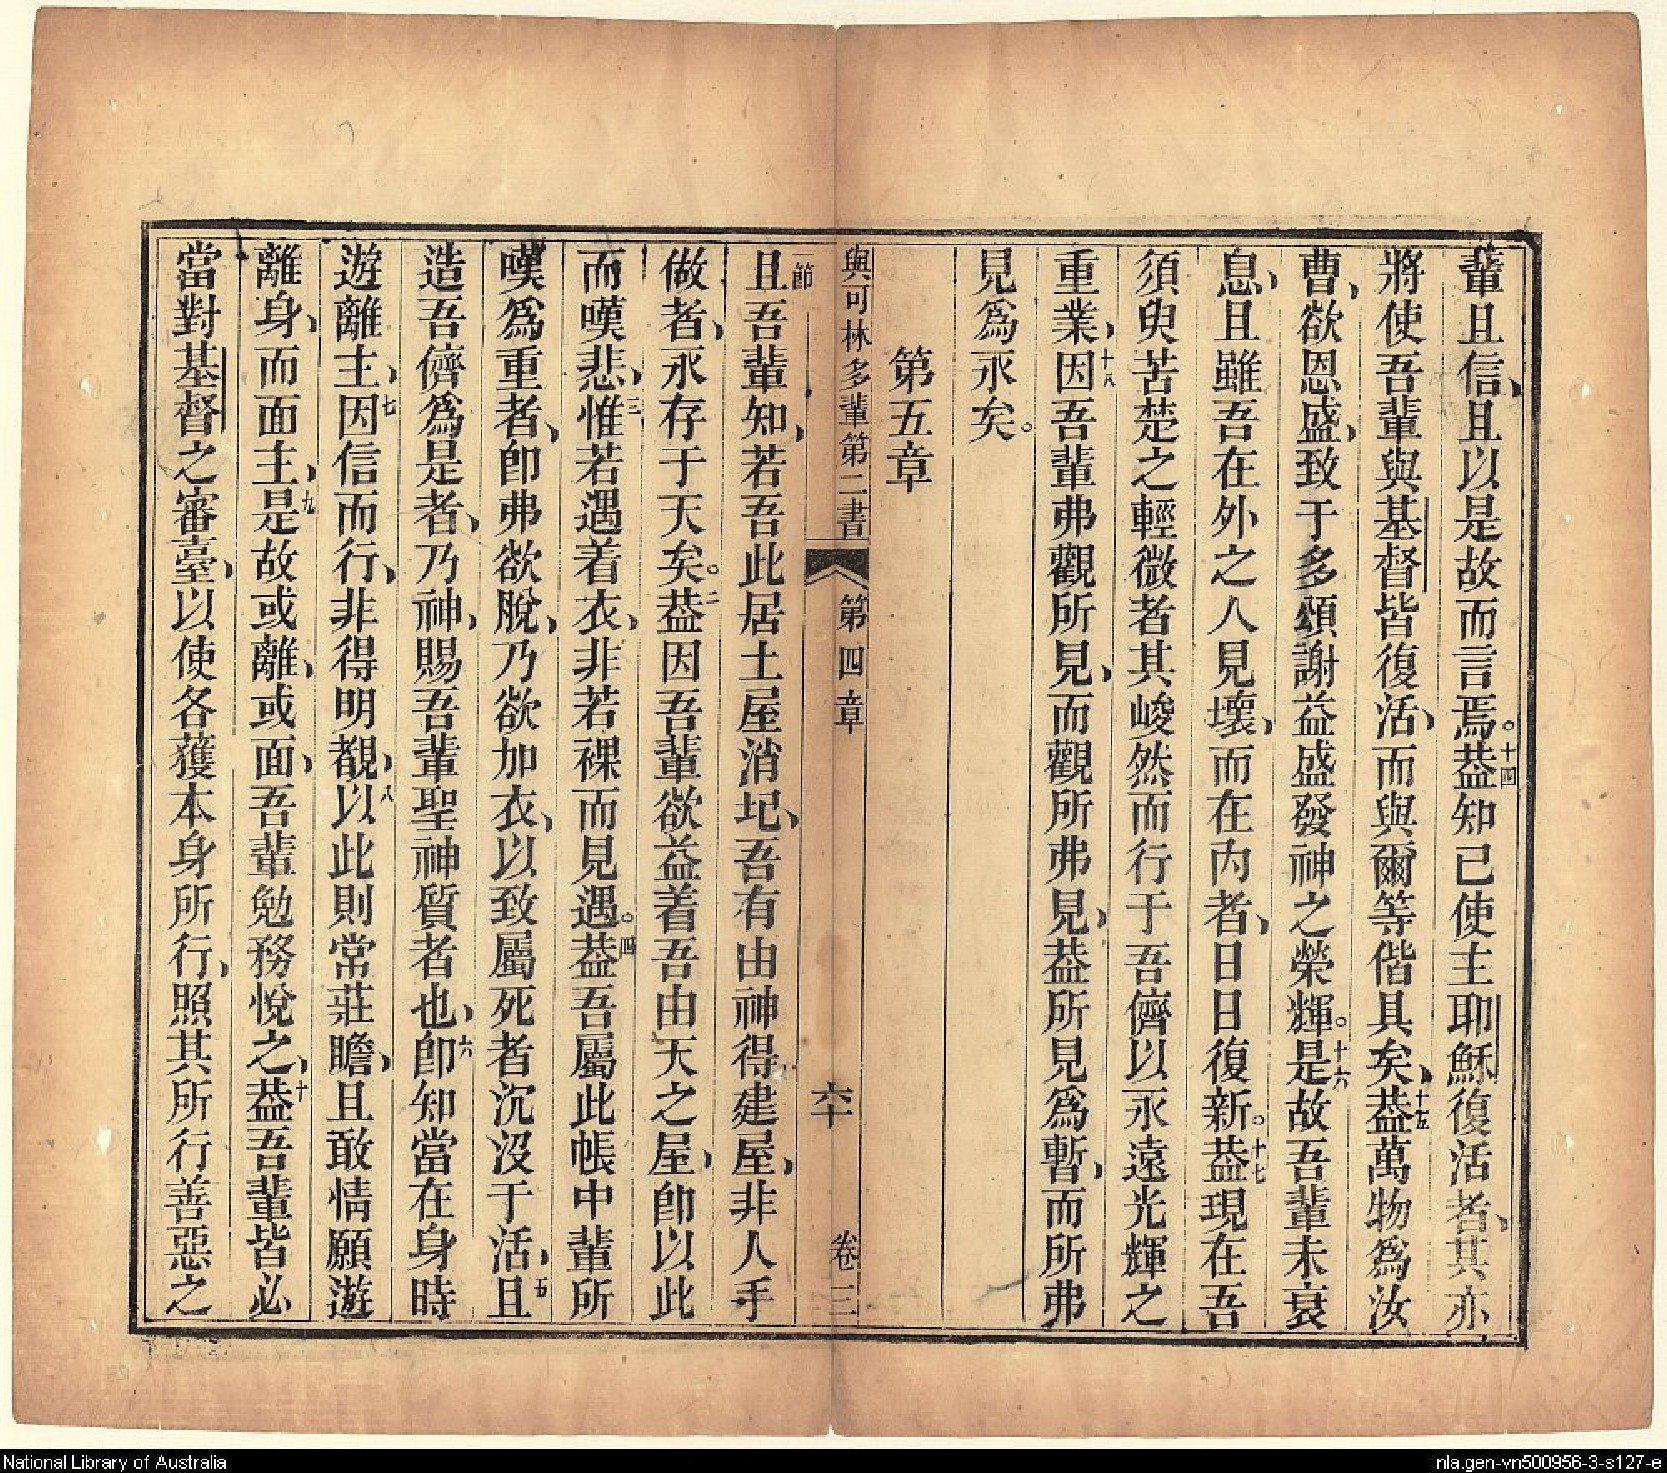 輩且信、且以是故而言焉。十四葢知已使主耶穌復活者、其亦
將使吾輩與基督皆復活、而與爾等偕具矣、十五葢萬物為汝
曹、欲恩盛、致于多頌謝益盛發神之榮輝。十六是故吾輩未衰
息、且雖吾在外之人見壞、而在內者、日日復新。十七葢現在吾
須臾苦楚之輕微者其峻然而行于吾儕以永遠光輝之
重業、十八因吾輩弗觀所見、而觀所弗見、葢所見為暫、而所弗
見為永矣。
第五章
與可林多輩第二書 第四章 六十 卷三
一節且吾輩知、若吾此居土屋消圮、吾有由神得建屋、非人手
做者、永存于天矣。二葢因吾輩欲益着吾由天之屋、卽以此
而嘆悲、三惟若遇着衣、非若裸而見遇。四葢吾屬此帳中輩所
嘆為重者、卽弗欲脫、乃欲加衣、以致屬死者沉沒于活、五且
造吾儕為是者、乃神、賜吾輩聖神質者也、六卽知當在身時
遊離主、七因信而行、非得明覩、八以此則常莊瞻、且敢情願遊
離身、而面主、九是故或離、或面、吾輩勉務悅之、十葢吾輩皆必
當對基督之審臺、以使各獲本身所行、照其所行善惡之
National Library of Australia
nla.gen-vn500956-3-s127-e